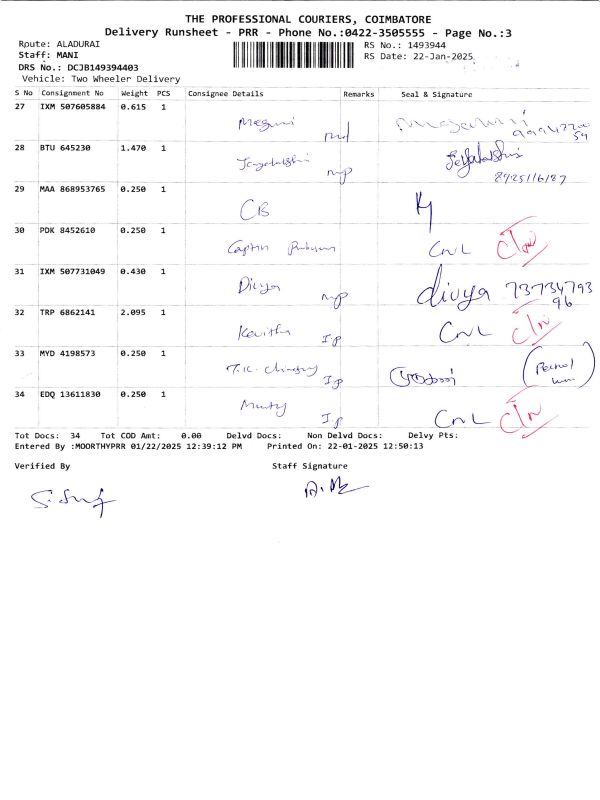 THE PROFESSIONAL COURIERS, COIMBATORE
Delivery Runsheet - PRR - Phone No.:0422-3505555 - Page No.:3
Route: ALADURAI
RS No.: 1493944
Staff: MANI
RS Date: 22-Jan-2025
DRS No.: DCJB149394403
Vehicle: Two Wheeler Delivery
S No Consignment No Weight PCS Consignee Details Remarks Seal & Signature
27 IXM 507605884 0.615 1
28 BTU 645230 1.470 1
Jayalakshmi
29 MAA 868953765 0.250 1
CB
30 PDK 8452610 0.250 1
Captain CNL
31 IXM 507731049 0.430 1
Divya divya 73734793
96
32 TRP 6862141 2.095 1
Kavitha CNL
33 MYD 4198573 0.250 1
34 EDQ 13611830 0.250 1
CNL
Tot Docs: 34 Tot COD Amt: 0.00 Delvd Docs: Non Delvd Docs: Delvy Pts:
Entered By :MOORTHYPRR 01/22/2025 12:39:12 PM Printed On: 22-01-2025 12:50:13
Verified By Staff Signature